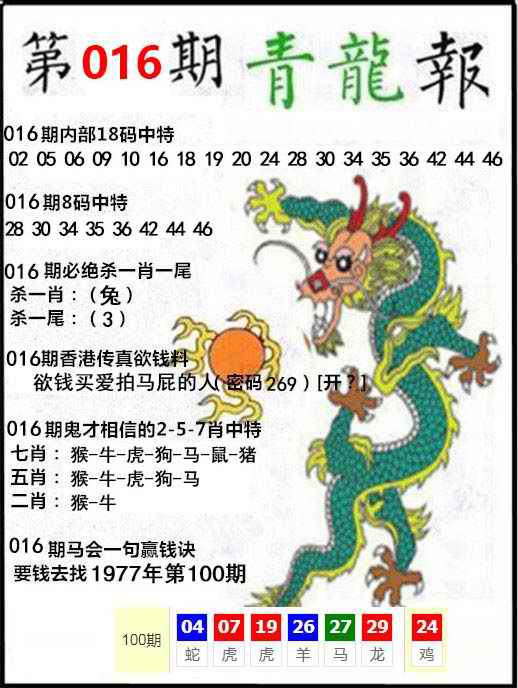 第016期青龍報
016期内部18码中特
02 05 06 09 10 16 18 19 20 24 28 30 34 35 36 42 44 46
016期8码中特
28 30 34 35 36 42 44 46
016期必绝杀一肖一尾
杀一肖：(兔)
杀一尾：(3)
016期香港传真欲钱料
欲钱买爱拍马屁的人(密码269)[开?]
016期鬼才相信的2-5-7肖中特
七肖：猴-牛-虎-狗-马-鼠-猪
五肖：猴-牛-虎-狗-马
二肖：猴-牛
016期马会一句赢钱诀
要钱去找1977年第100期
100期 04 07 19 26 27 29 24
蛇 虎 虎 羊 马 龙 鸡